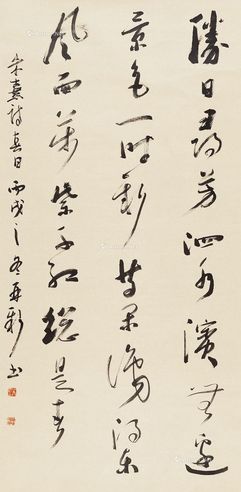 勝日尋芳泗水濱無邊
景色一時新等閒識得東
風面萬紫千紅總是春
朱熹詩春日丙戌之冬再新書